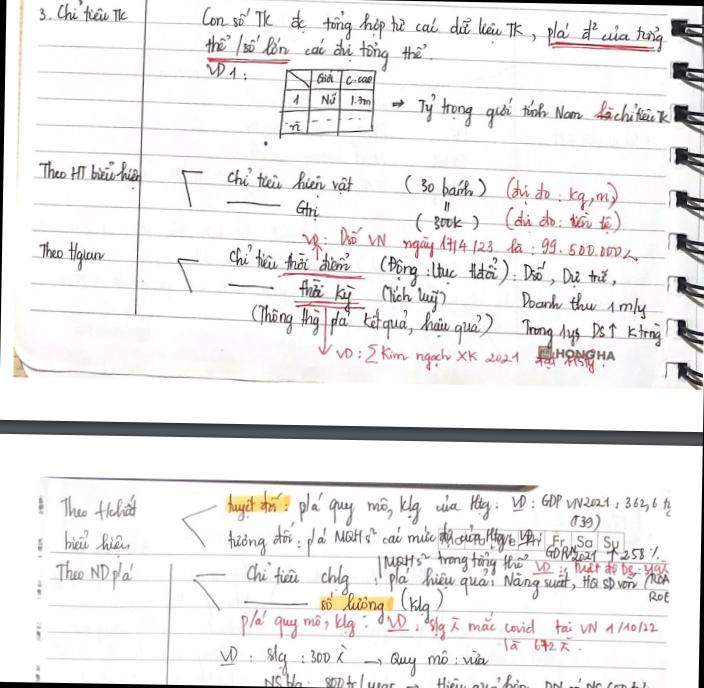 3. Chỉ tiêu TK
Con số TK đc tổng hợp từ các dữ liệu TK, p/á đ² của từng
thể / số lớn các đvị tổng thể.
VD 1:
Giới C.cao
1 Nữ 1.7m
n - - - -
→ Tỷ trọng giới tính Nam là chỉ tiêu TK
Theo HT biểu hiện
Chỉ tiêu hiện vật (30 bánh) (đvị đo: kg, m)
Gtrị (300k) (đvị đo: tiền tệ)
VD: Dsố VN ngày 17/4/23 là: 99.500.000
Theo tgian
Chỉ tiêu thời điểm (Động: ): Dsố, Dự trữ,
thời kỳ (Tích luỹ) Doanh thu 1
(Thông thg p/á kết quả, hậu quả) Trong DS↑ K
VD: Σ Kim ngạch XK 2021
HONG HA
Theo t/chất
biểu hiện
tuyệt đối: p/á quy mô, klg của Htg: VD: GDP VN 2021: 362,6 tỷ
tương đối: p/á MQH s² các mức độ của Htg VD:
Fr Sa Su
GDP VN 2021 ↑ 2.58 %
MQH s² trong tổng thể VD: Mật độ DS:
Theo ND p/á
Chỉ tiêu chlg: p/á hiệu quả: Năng suất, HQ SD vốn (ROA
ROE
số lượng (klg)
p/á quy mô, klg: VD: slg mắc covid tại VN 1/10/22
là 672
VD: slg: 300 → Quy mô: vừa